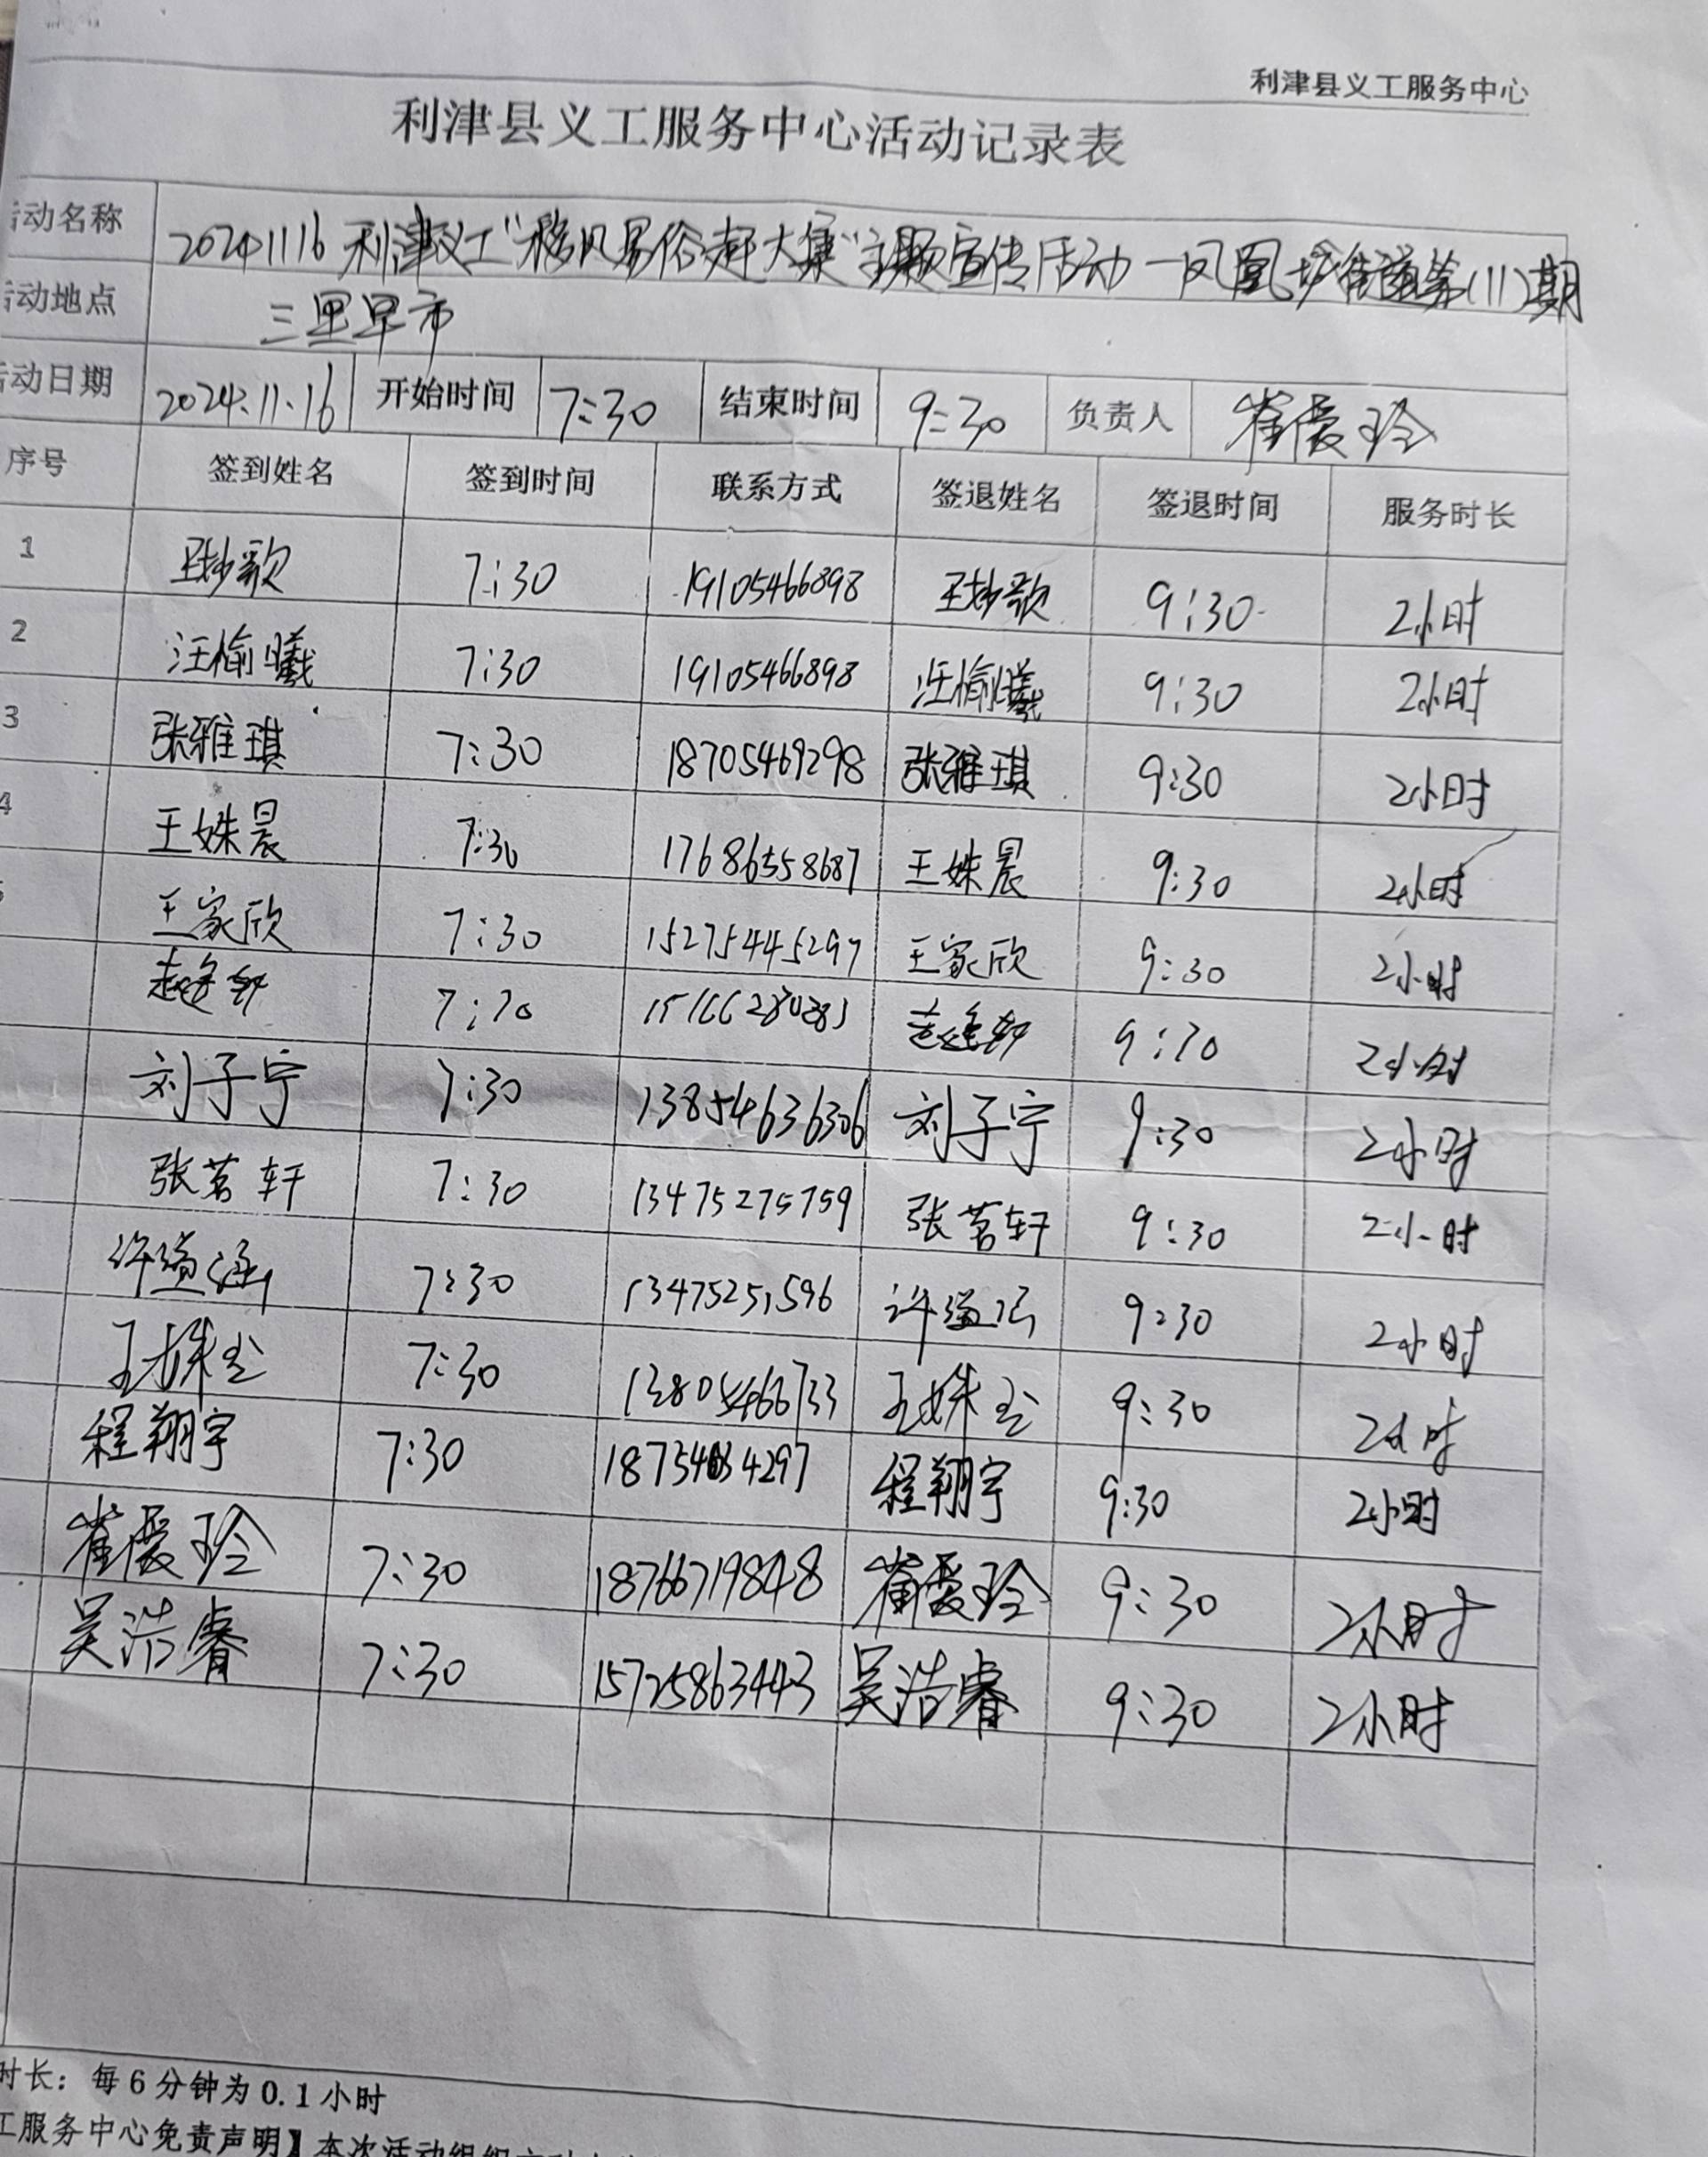 利津县义工服务中心
利津县义工服务中心活动记录表
活动名称 20241116 利津义工"移风易俗赶大集"主题宣传活动—凤凰城街道第(11)期
活动地点 三里早市
活动日期 2024.11.16 开始时间 7:30 结束时间 9:30 负责人 崔爱玲
序号 签到姓名 签到时间 联系方式 签退姓名 签退时间 服务时长
1 王妙歌 7:30 19105466898 王妙歌 9:30 2小时
2 汪愉曦 7:30 19105466898 汪愉曦 9:30 2小时
3 张雅琪 7:30 18705469298 张雅琪 9:30 2小时
4 王姝晨 7:30 17686558687 王姝晨 9:30 2小时
王家欣 7:30 15275445297 王家欣 9:30 2小时
7:30 9:30 2小时
刘子宁 7:30 13854636306 刘子宁 9:30 2小时
张茗轩 7:30 13475275759 张茗轩 9:30 2小时
7:30 13475251596 9:30 2小时
7:30 13805466733 9:30 2小时
程翔宇 7:30 程翔宇 9:30 2小时
崔爱玲 7:30 18766719848 崔爱玲 9:30 2小时
吴浩睿 7:30 15725863443 吴浩睿 9:30 2小时
时长：每6分钟为0.1小时
工服务中心免责声明】本次活动组织